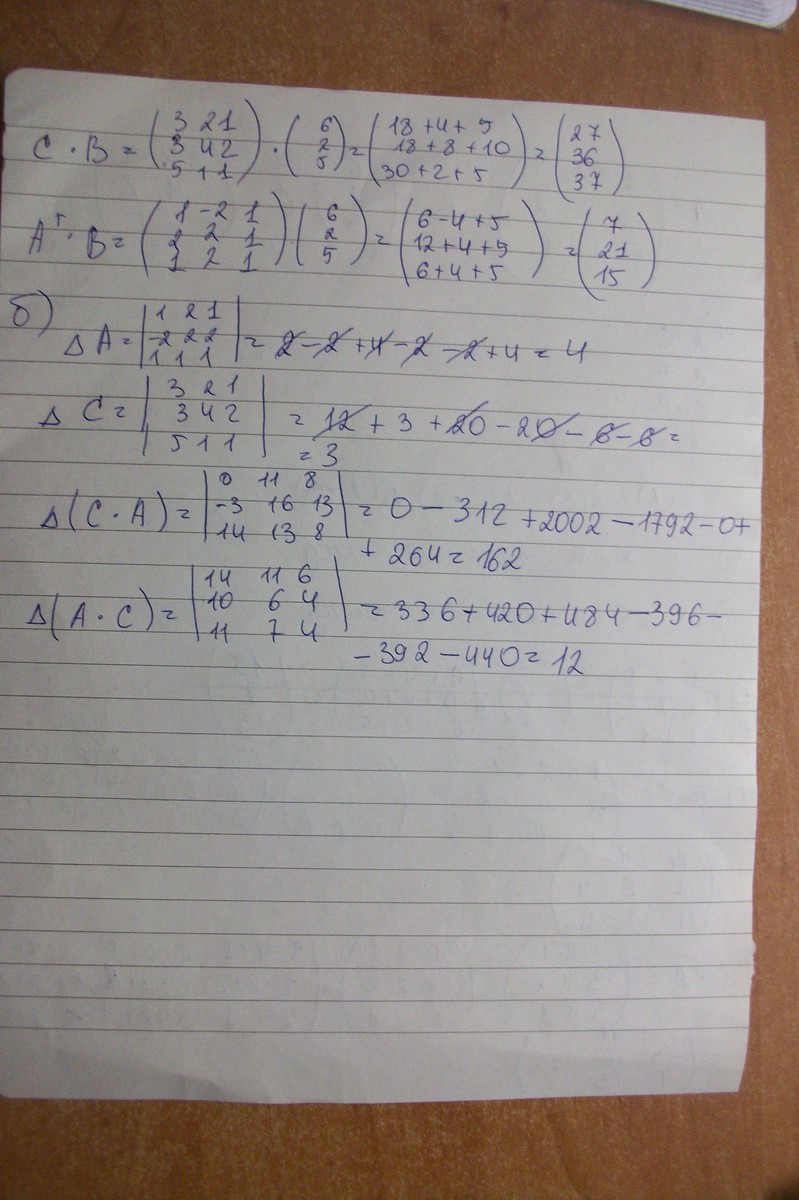 C · B = (3 2 1 / 3 4 2 / 5 1 1) · (6 / 2 / 5) = (18 + 4 + 5 / 18 + 8 + 10 / 30 + 2 + 5) = (27 / 36 / 37)
Aᵀ · B = (1 -2 1 / 2 2 1 / 1 2 1) (6 / 2 / 5) = (6 - 4 + 5 / 12 + 4 + 5 / 6 + 4 + 5) = (7 / 21 / 15)
б)
Δ A = |1 2 1 / -2 2 2 / 1 1 1| = 2 - 2 + 4 - 2 - 2 + 4 = 4
Δ C = |3 2 1 / 3 4 2 / 5 1 1| = 12 + 3 + 20 - 20 - 6 - 6 =
= 3
Δ(C · A) = |0 11 8 / -3 16 13 / 14 13 8| = 0 - 312 + 2002 - 1792 - 0 +
+ 264 = 162
Δ(A · C) = |14 11 6 / 10 6 4 / 11 7 4| = 336 + 420 + 484 - 396 -
- 392 - 440 = 12